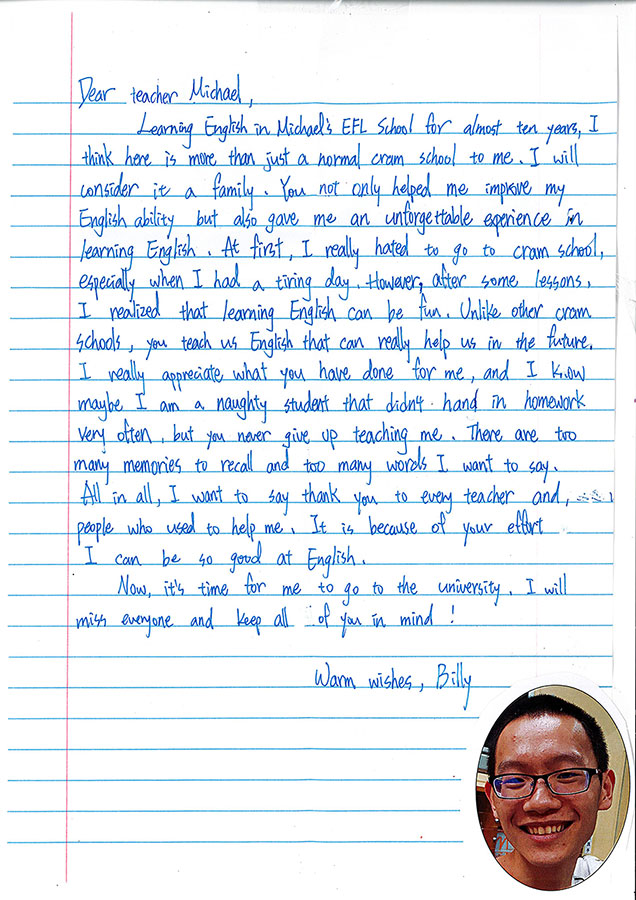 Dear teacher Michael,
Learning English in Michael's EFL School for almost ten years, I
think here is more than just a normal cram school to me. I will
consider it a family. You not only helped me improve my
English ability but also gave me an unforgettable experience in
learning English. At first, I really hated to go to cram school,
especially when I had a tiring day. However, after some lessons,
I realized that learning English can be fun. Unlike other cram
schools, you teach us English that can really help us in the future.
I really appreciate what you have done for me, and I know
maybe I am a naughty student that didn't hand in homework
very often, but you never give up teaching me. There are too
many memories to recall and too many words I want to say.
All in all, I want to say thank you to every teacher and,
people who used to help me. It is because of your effort
I can be so good at English.
Now, it's time for me to go to the university. I will
miss everyone and keep all of you in mind!
Warm wishes, Billy